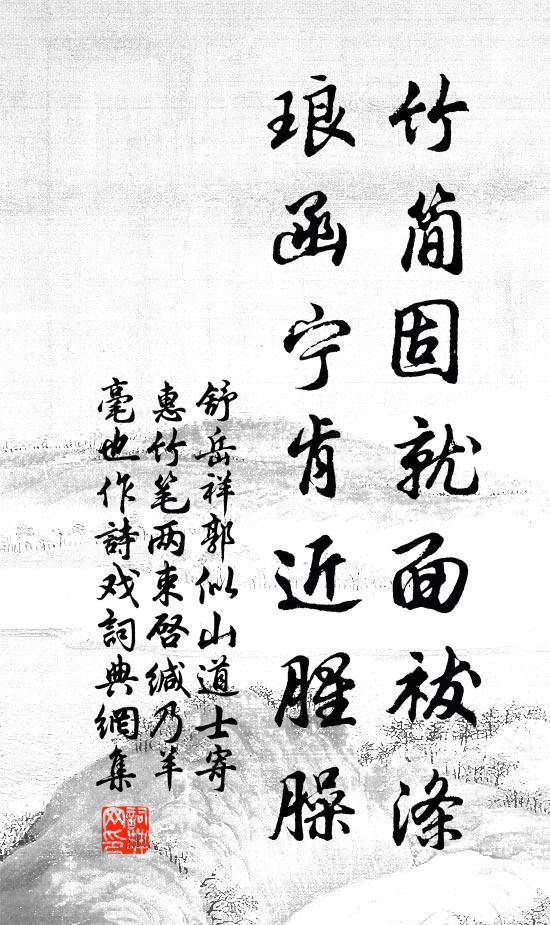 竹简固就面袚涤
琅函宁肯近腥臊
舒岳祥郭似山道士寄
惠竹笔两束啓缄乃羊
毫也作詩戏詞典網集